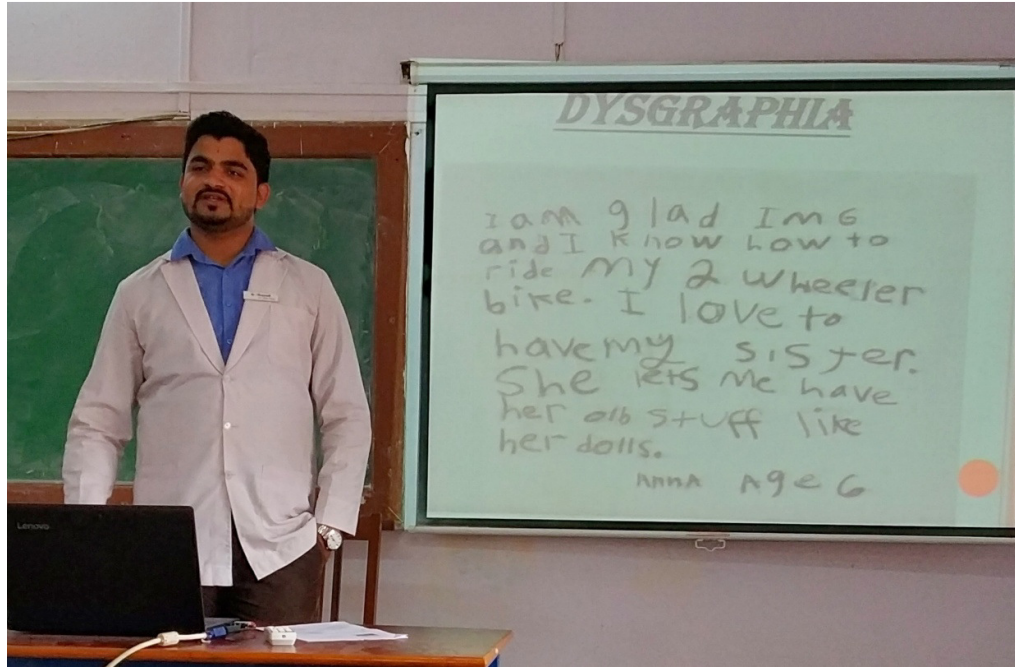 DYSGRAPHIA
I am glad Im 6
and I know how to
ride my 2 wheeler
bike. I love to
have my sister.
She lets me have
her olb stuff like
her dolls.
AnnA Age 6
Lenovo